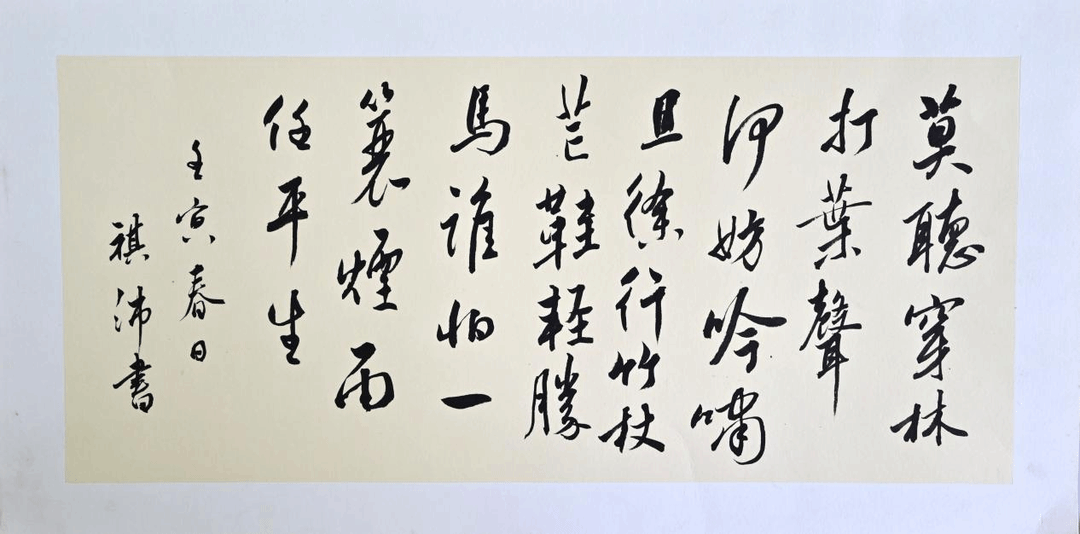 莫聽穿林
打葉聲
何妨吟嘯
且徐行竹杖
芒鞋輕勝
馬誰怕一
蓑煙雨
任平生
壬寅春日
祺沛書